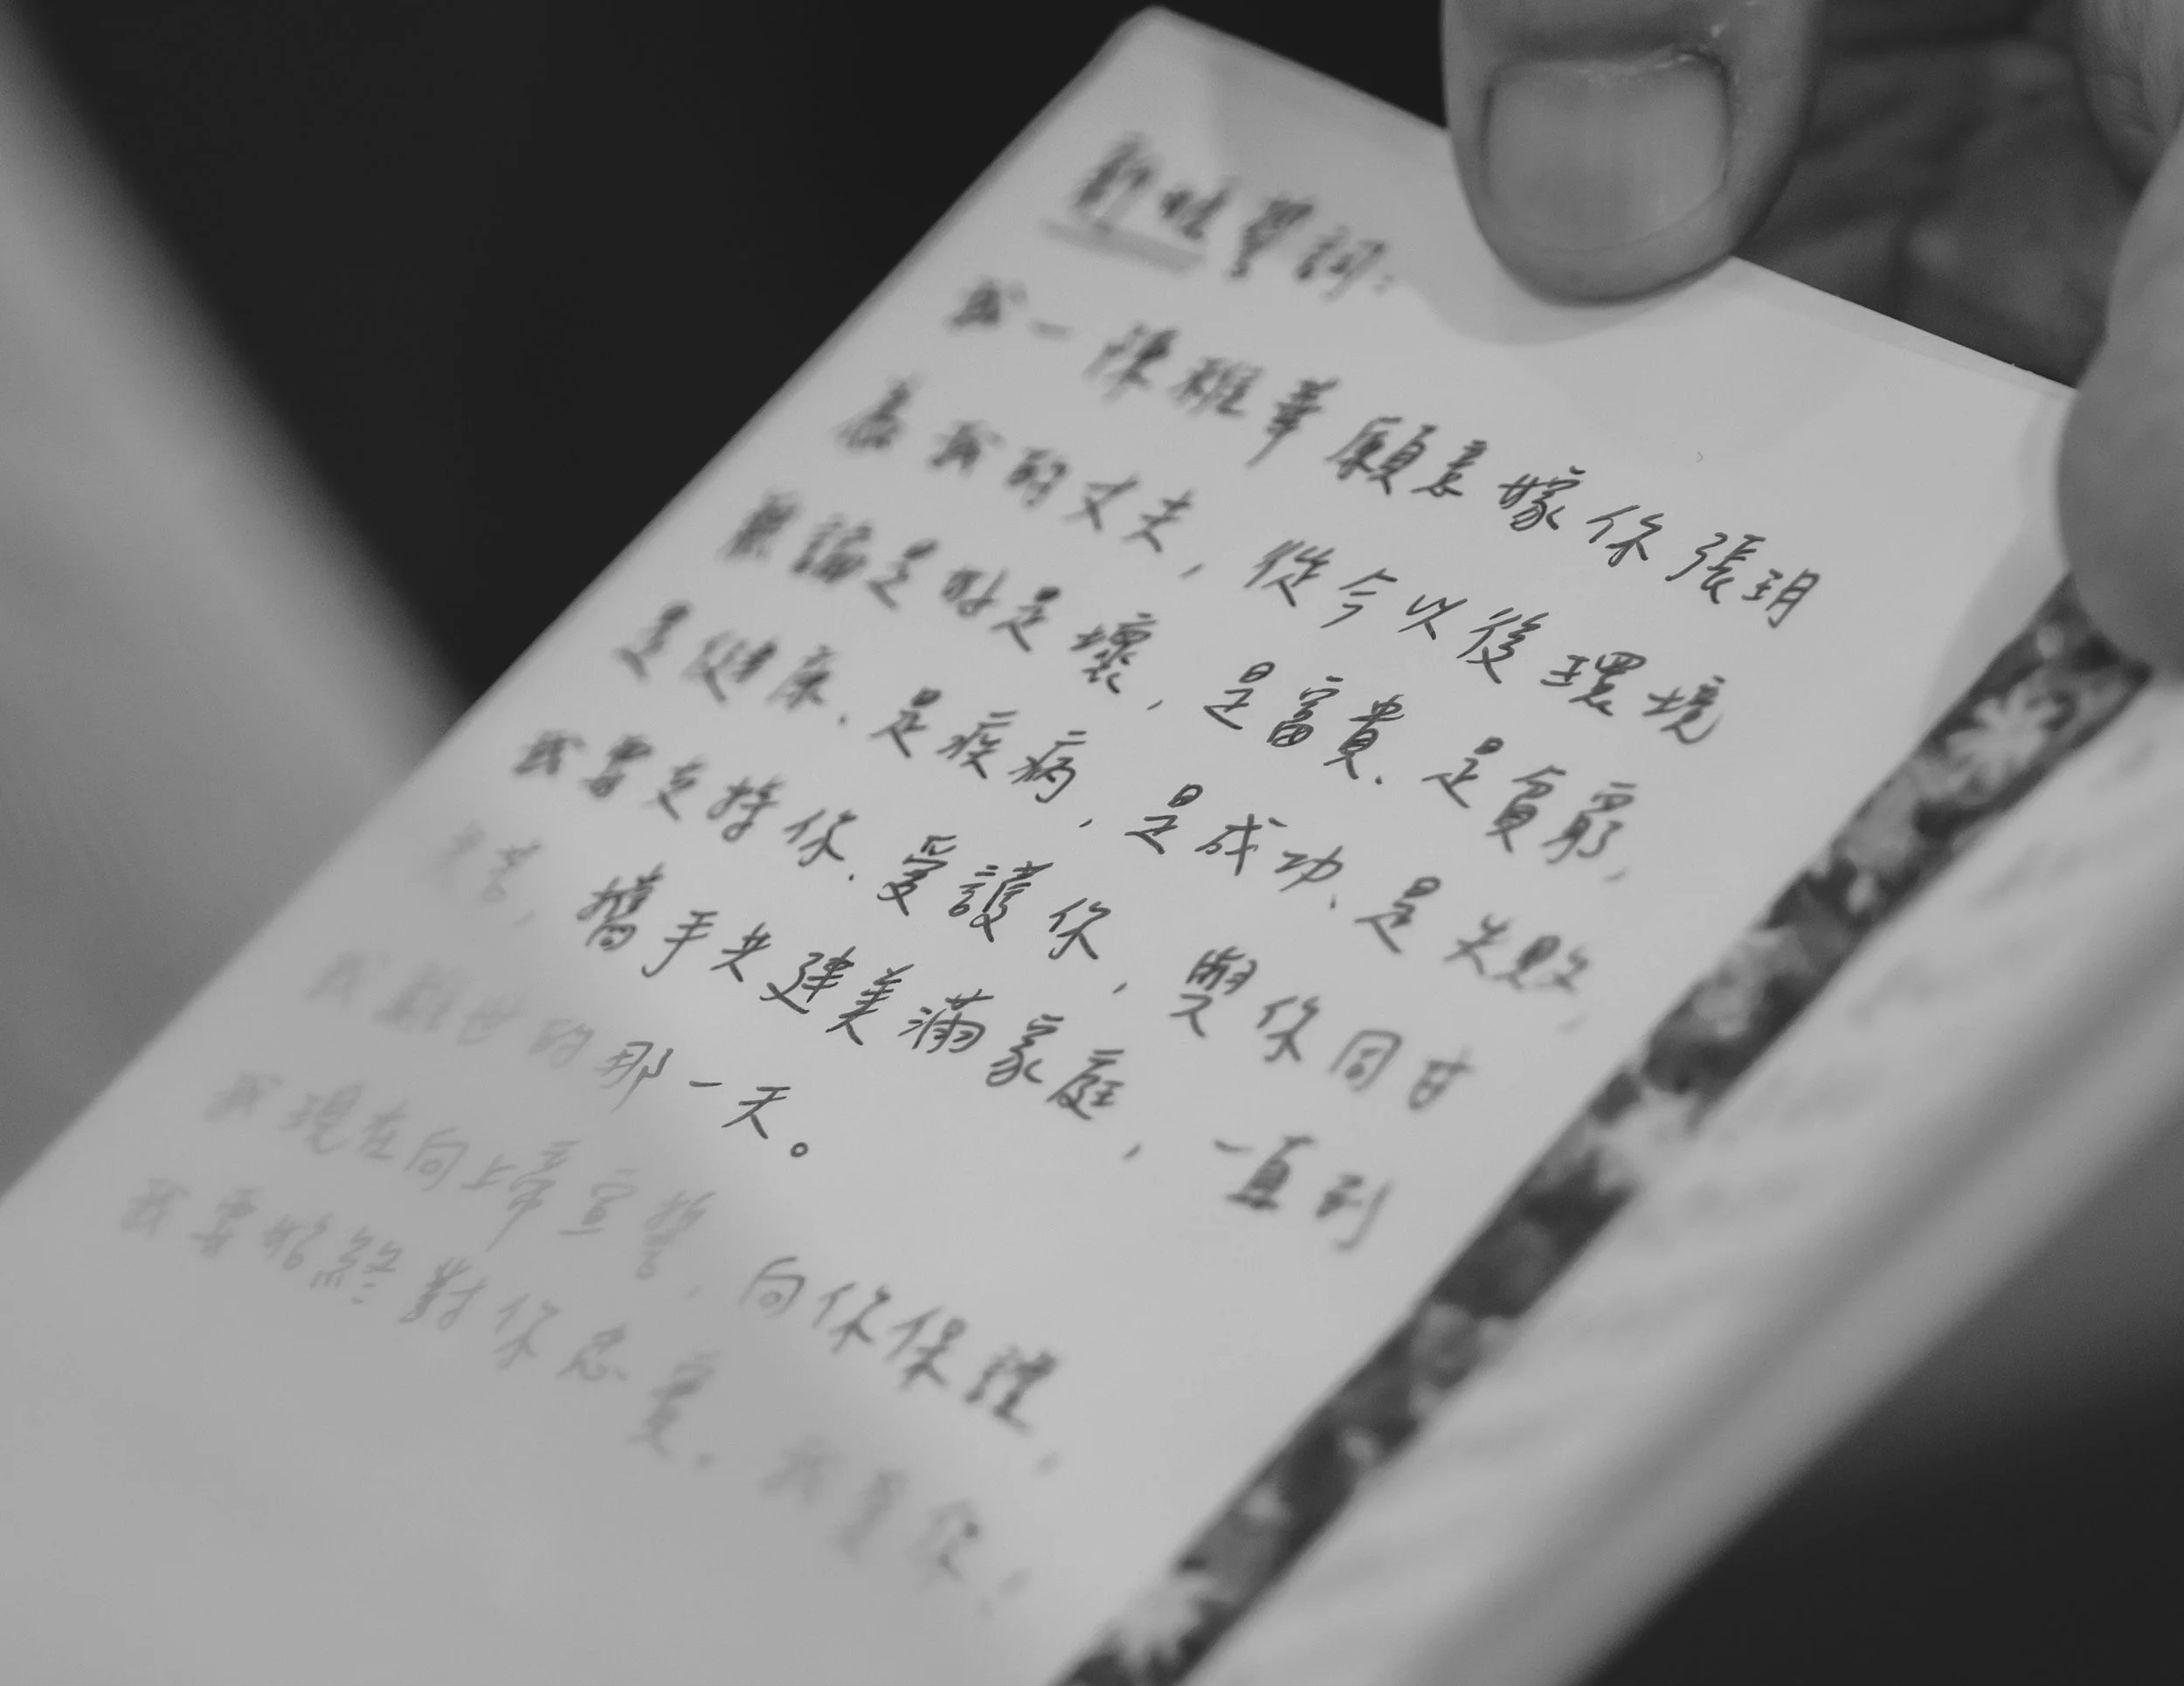 新娘誓詞:
我一陳雅華願意嫁你張玥
為我的丈夫,從今以後環境
無論是好是壞,是富貴、是貧窮,
是健康、是疾病,是成功、是失敗,
我要支持你、愛護你,與你同甘
共苦,攜手共建美滿家庭,一直到
我離世的那一天。
我現在向上帝宣誓,向你保證,
我要始終對你忠實。我愛你!